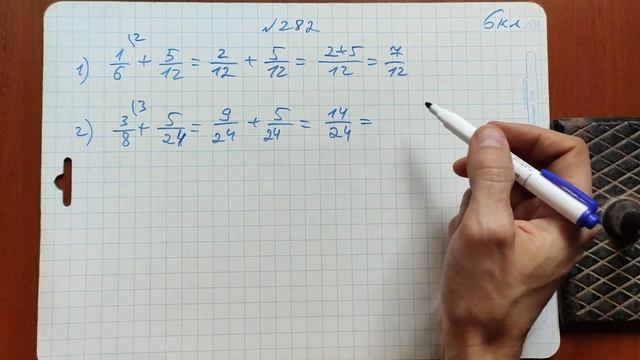 №282
6кл.
1) 1/6 (2 + 5/12 = 2/12 + 5/12 = 2+5/12 = 7/12
2) 3/8 (3 + 5/24 = 9/24 + 5/24 = 14/24 =